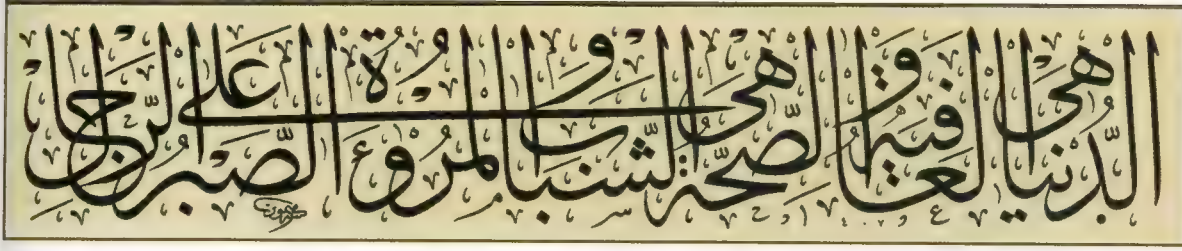 الدُّنيا هي العافية والصِّحَّة هي الشَّباب والمُرُوءَة الصَّبْر على الرِّجال